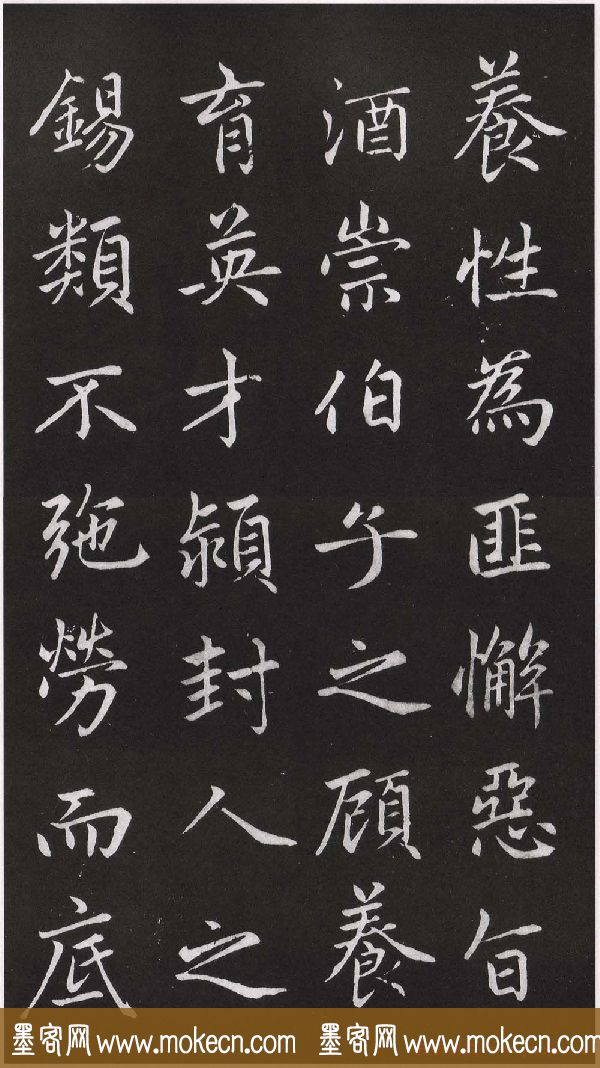 養性為匪懈惡旨
酒崇伯子之顧養
育英才潁封人之
錫類不弛勞而底
墨客网 www.mokecn.com 墨客网 www.mokecn.com